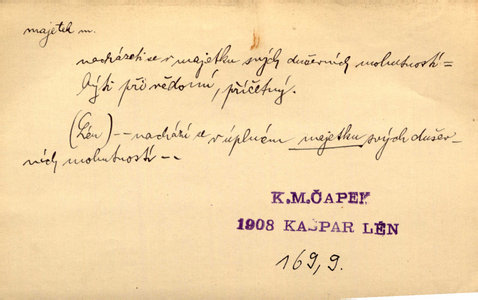 majetek m.
nacházeti se v majetku svých duševních mohutností =
býti při vědomí, příčetný.
(Lén) -- nachází se v úplném majetku svých dušev-
ních mohutností --
K.M.ČAPEK
1908 KAŠPAR LÉN
169,9.